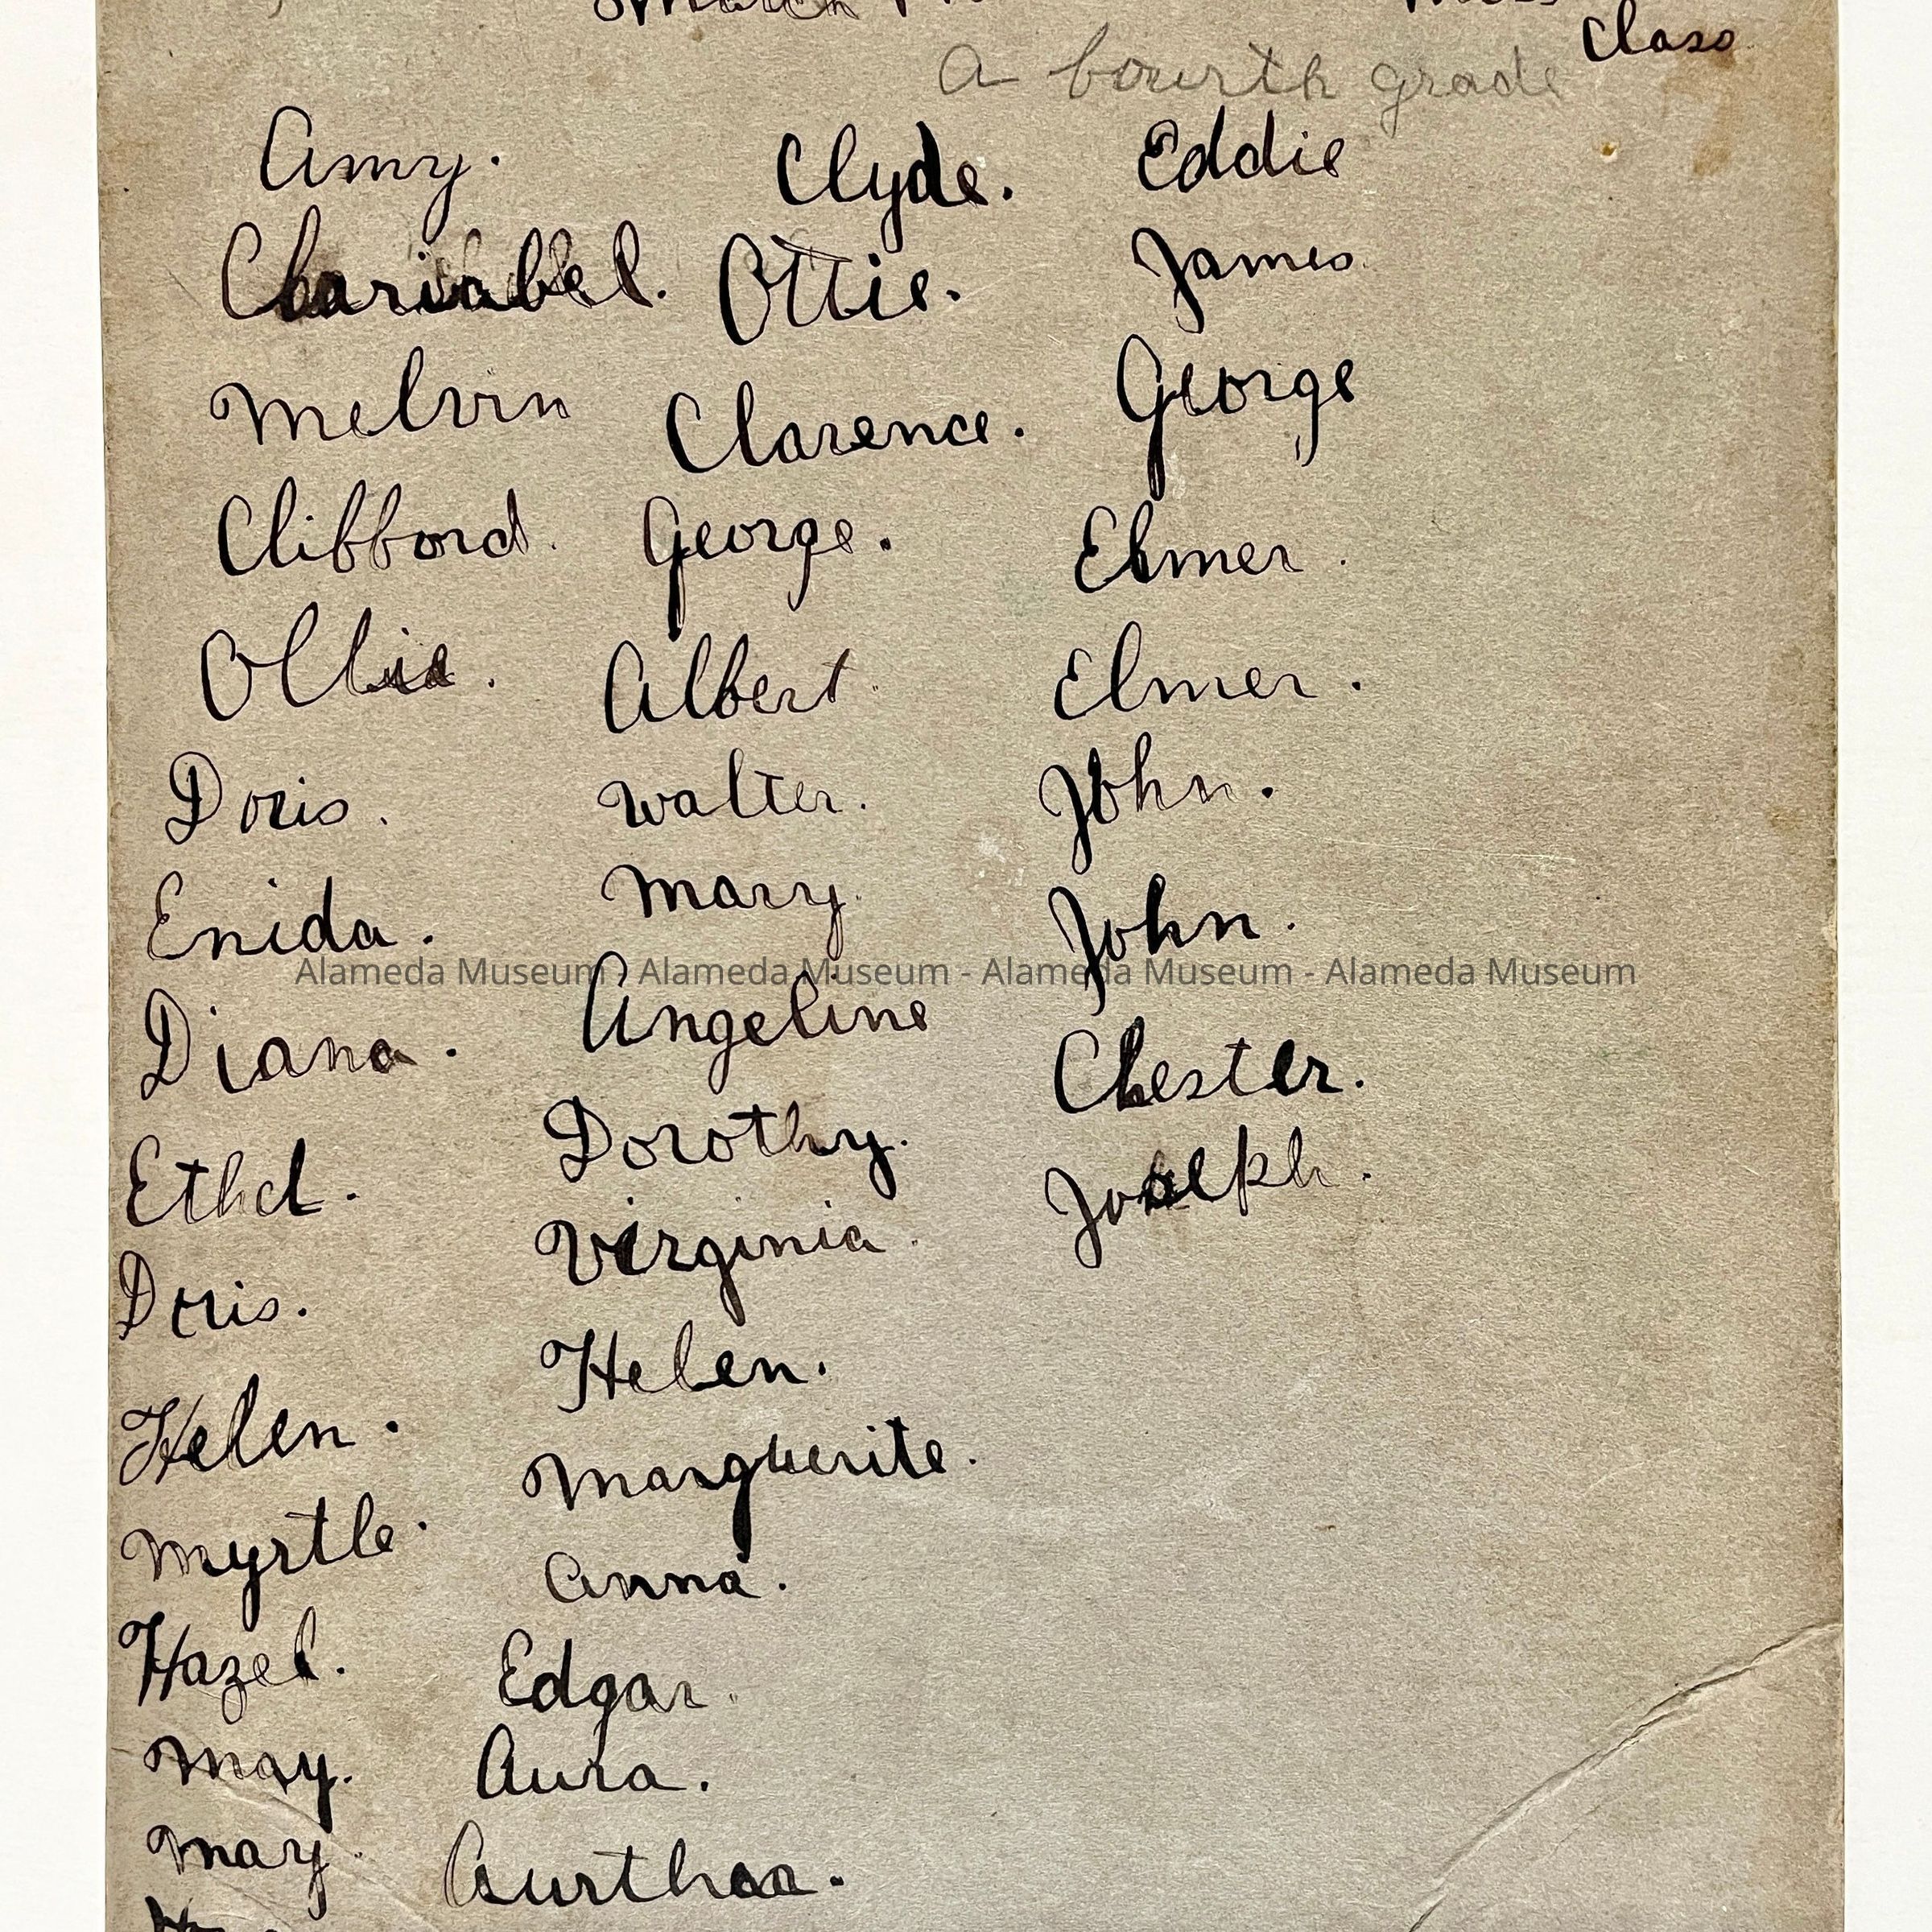 March
Class
A fourth grade
Amy. Clyde. Eddie
Clariabel. Ottie. James
Melvin Clarence. George
Clifford. George. Elmer.
Ollie. Albert Elmer.
Doris. Walter. John.
Enida. Mary. John.
Alameda Museum - Alameda Museum - Alameda Museum - Alameda Museum
Diana. Angeline Chester.
Ethel. Dorothy. Joseph.
Doris. Virginia.
Helen. Helen.
Myrtle. Marguerite.
Hazel. Anna.
May. Edgar.
May. Aura.
Aurthea.